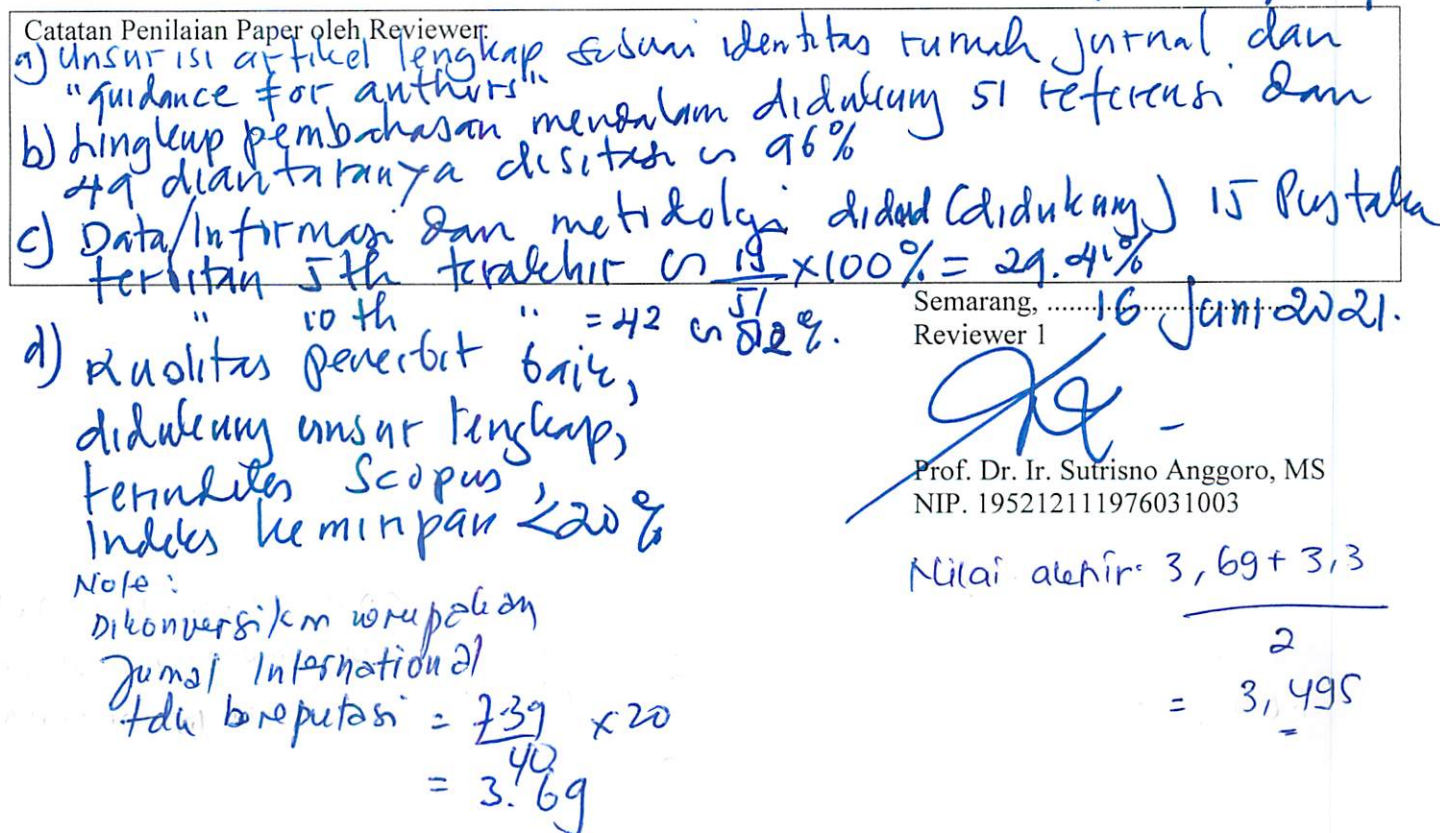 Catatan Penilaian Paper oleh Reviewer:
a) Unsur isi artikel lengkap sesuai identitas rumah jurnal dan
"guidance for authors"
b) Lingkup pembahasan mendalam didukung 51 referensi dan
49 diantaranya disitasi ∽ 96%
c) Data/Informasi dan metodologi (didukung) 15 Pustaka
terbitan 5 th terakhir ∽ 15/51 ×100% = 29.41%
" 10 th " = 42 ∽ 82%.
d) Kualitas penerbit baik,
didukung unsur lengkap,
terindeks Scopus,
Indeks kemiripan <20%
Note:
Dikonversikan merupakan
Jurnal International
tdk bereputasi = 7.39/40 × 20
= 3.69
Semarang, ......16 Juni 2021.
Reviewer 1
Prof. Dr. Ir. Sutrisno Anggoro, MS
NIP. 195212111976031003
Nilai akhir = 3,69 + 3,3
2
= 3,495